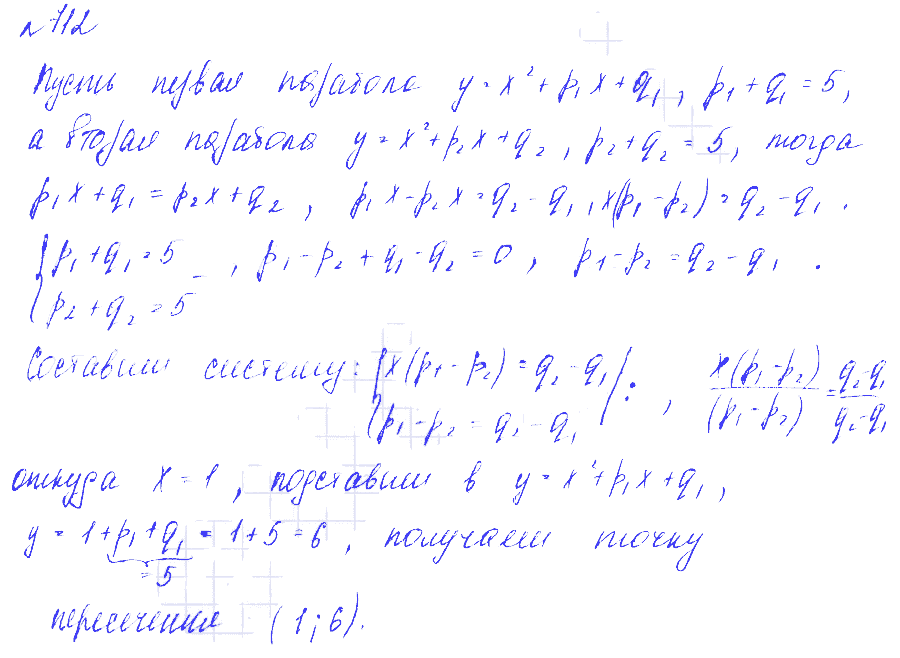 № 112
Пусть первая парабола y = x² + p₁x + q₁, p₁ + q₁ = 5,
а вторая парабола y = x² + p₂x + q₂, p₂ + q₂ = 5, тогда
p₁x + q₁ = p₂x + q₂, p₁x - p₂x = q₂ - q₁, x(p₁ - p₂) = q₂ - q₁.
{ p₁ + q₁ = 5 -, p₁ - p₂ + q₁ - q₂ = 0, p₁ - p₂ = q₂ - q₁.
p₂ + q₂ = 5
Составим систему: { x(p₁ - p₂) = q₂ - q₁ | :, x(p₁ - p₂) / (p₁ - p₂) = q₂ - q₁ / q₂ - q₁
p₁ - p₂ = q₂ - q₁
откуда x = 1, подставим в y = x² + p₁x + q₁,
y = 1 + p₁ + q₁ = 1 + 5 = 6, получаем точку
= 5
пересечения (1; 6).